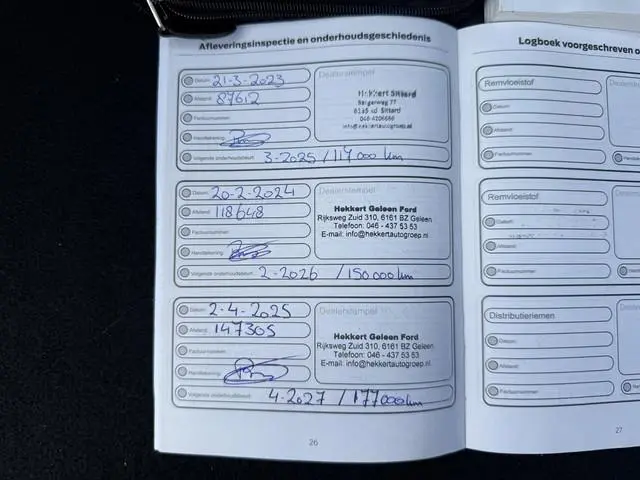 Afleveringsinspectie en onderhoudsgeschiedenis
Datum: 21-3-2023
Afstand: 87612
Factuurnummer:
Handtekening:
Volgende onderhoudsbeurt: 3-2025 / 117000 km
Dealerstempel
Hekkert Sittard
Bergerweg 77
Sittard
046-4206666
info@hekkertautogroep.nl
Datum: 20-2-2024
Afstand: 118648
Factuurnummer:
Handtekening:
Volgende onderhoudsbeurt: 2-2026 / 150000 km
Dealerstempel
Hekkert Geleen Ford
Rijksweg Zuid 310, 6161 BZ Geleen
Telefoon: 046 - 437 53 53
E-mail: info@hekkertautogroep.nl
Datum: 2-4-2025
Afstand: 147305
Factuurnummer:
Handtekening:
Volgende onderhoudsbeurt: 4-2027 / 177000 km
Dealerstempel
Hekkert Geleen Ford
Rijksweg Zuid 310, 6161 BZ Geleen
Telefoon: 046 - 437 53 53
E-mail: info@hekkertautogroep.nl
26
Logboek voorgeschreven
Remvloeistof
Datum:
Afstand:
Factuurnummer:
Remvloeistof
Datum:
Afstand:
Factuurnummer:
Distributieriemen
Datum:
Afstand:
Factuurnummer:
27